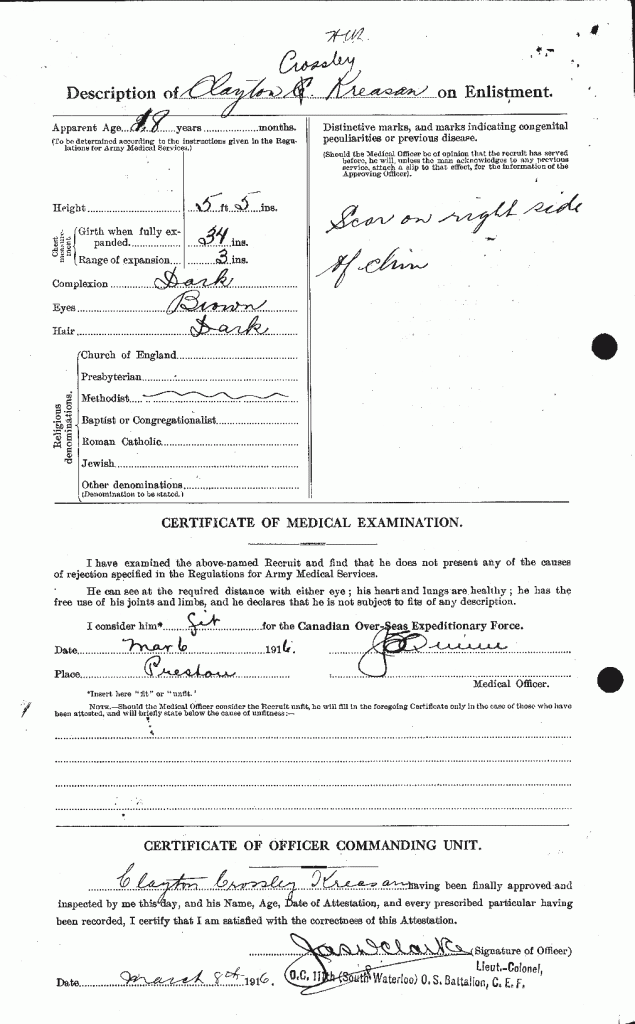 Crossley
Description of Clayton C. Kreasan on Enlistment.
Apparent Age 18 years months.
(To be determined according to the instructions given in the Regulations for Army Medical Services.)
Height 5 ft 5 ins.
Chest measurement
Girth when fully expanded 34 ins.
Range of expansion 3 ins.
Complexion Dark
Eyes Brown
Hair Dark
Religious denominations.
Church of England
Presbyterian
Methodist
Baptist or Congregationalist
Roman Catholic
Jewish
Other denominations
(Denomination to be stated.)
Distinctive marks, and marks indicating congenital
peculiarities or previous disease.
(Should the Medical Officer be of opinion that the recruit has served
before, he will, unless the man acknowledges to any previous
service, attach a slip to that effect, for the information of the
Approving Officer).
Scar on right side
of chin
CERTIFICATE OF MEDICAL EXAMINATION.
I have examined the above-named Recruit and find that he does not present any of the causes
of rejection specified in the Regulations for Army Medical Services.
He can see at the required distance with either eye; his heart and lungs are healthy; he has the
free use of his joints and limbs, and he declares that he is not subject to fits of any description.
I consider him* fit for the Canadian Over-Seas Expeditionary Force.
Date Mar 6 1916.
Place Preston
Medical Officer.
*Insert here "fit" or "unfit."
NOTE.—Should the Medical Officer consider the Recruit unfit, he will fill in the foregoing Certificate only in the case of those who have
been attested, and will briefly state below the cause of unfitness:—
CERTIFICATE OF OFFICER COMMANDING UNIT.
Clayton Crossley Kreasan having been finally approved and
inspected by me this day, and his Name, Age, Date of Attestation, and every prescribed particular having
been recorded, I certify that I am satisfied with the correctness of this Attestation.
Jas W Clarke (Signature of Officer)
Lieut.-Colonel,
Date March 8th 1916. O.C. 111th (South Waterloo) O. S. Battalion, C. E. F.